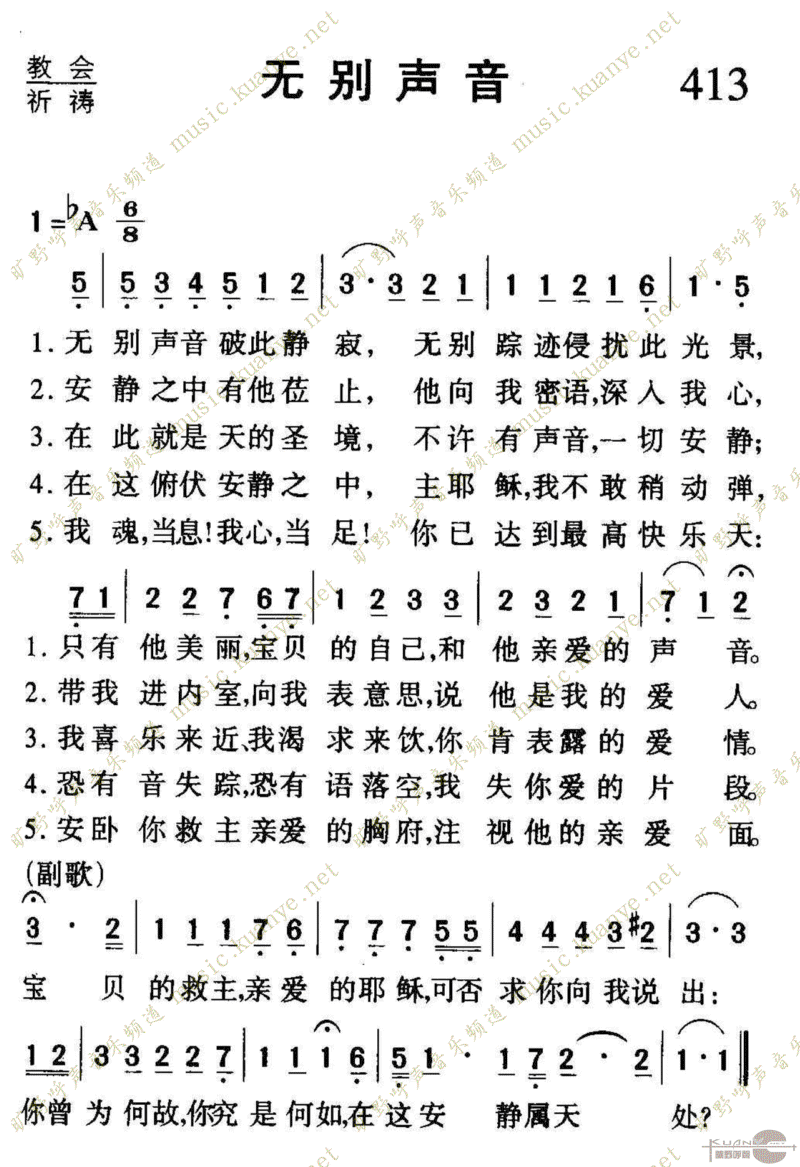 教会
祈祷
无别声音
413
1=♭A 6/8
5 | 5 3 4 5 1 2 | 3·3 2 1 | 1 1 2 1 6 | 1·5
1.无别声音破此静寂，无别踪迹侵扰此光景，
2.安静之中有他莅止，他向我密语,深入我心，
3.在此就是天的圣境，不许有声音,一切安静；
4.在这俯伏安静之中，主耶稣,我不敢稍动弹，
5.我魂,当息!我心,当足!你已达到最高快乐天：
7 1 | 2 2 7 6 7 | 1 2 3 3 | 2 3 2 1 | 7 1 2
1.只有他美丽,宝贝的自己,和他亲爱的声音。
2.带我进内室,向我表意思,说他是我的爱人。
3.我喜乐来近、我渴求来饮,你肯表露的爱情。
4.恐有音失踪,恐有语落空,我失你爱的片段。
5.安卧你救主亲爱的胸府,注视他的亲爱面。
(副歌)
3·2 | 1 1 1 7 6 | 7 7 7 5 5 | 4 4 4 3 #2 | 3·3
宝贝的救主,亲爱的耶稣,可否求你向我说出：
1 2 | 3 3 2 2 7 | 1 1 1 6 | 5 1· 1 7 2·2 | 1·1
你曾为何故,你究是何如,在这安静属天处?
旷野呼声音乐频道 music.kuanye.net
KUANYE
旷野呼声